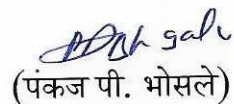 (पंकज पी. भोसले)